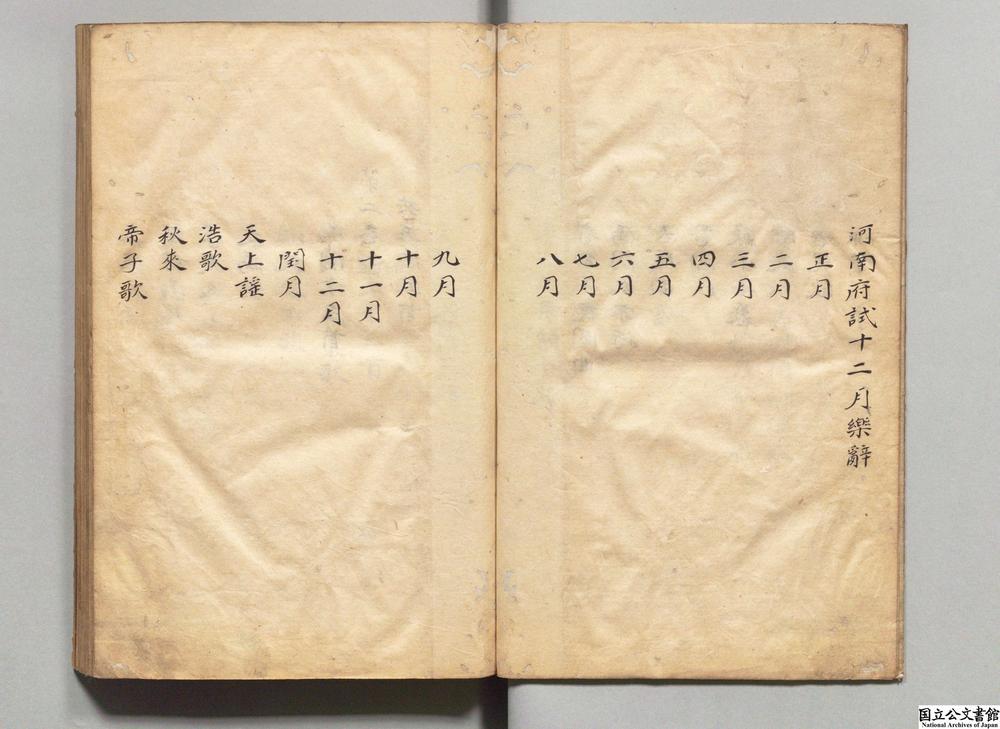 河南府試十二月樂辭
正月
二月
三月
四月
五月
六月
七月
八月
九月
十月
十一月
十二月
閏月
天上謡
浩歌
秋來
帝子歌
国立公文書館
National Archives of Japan